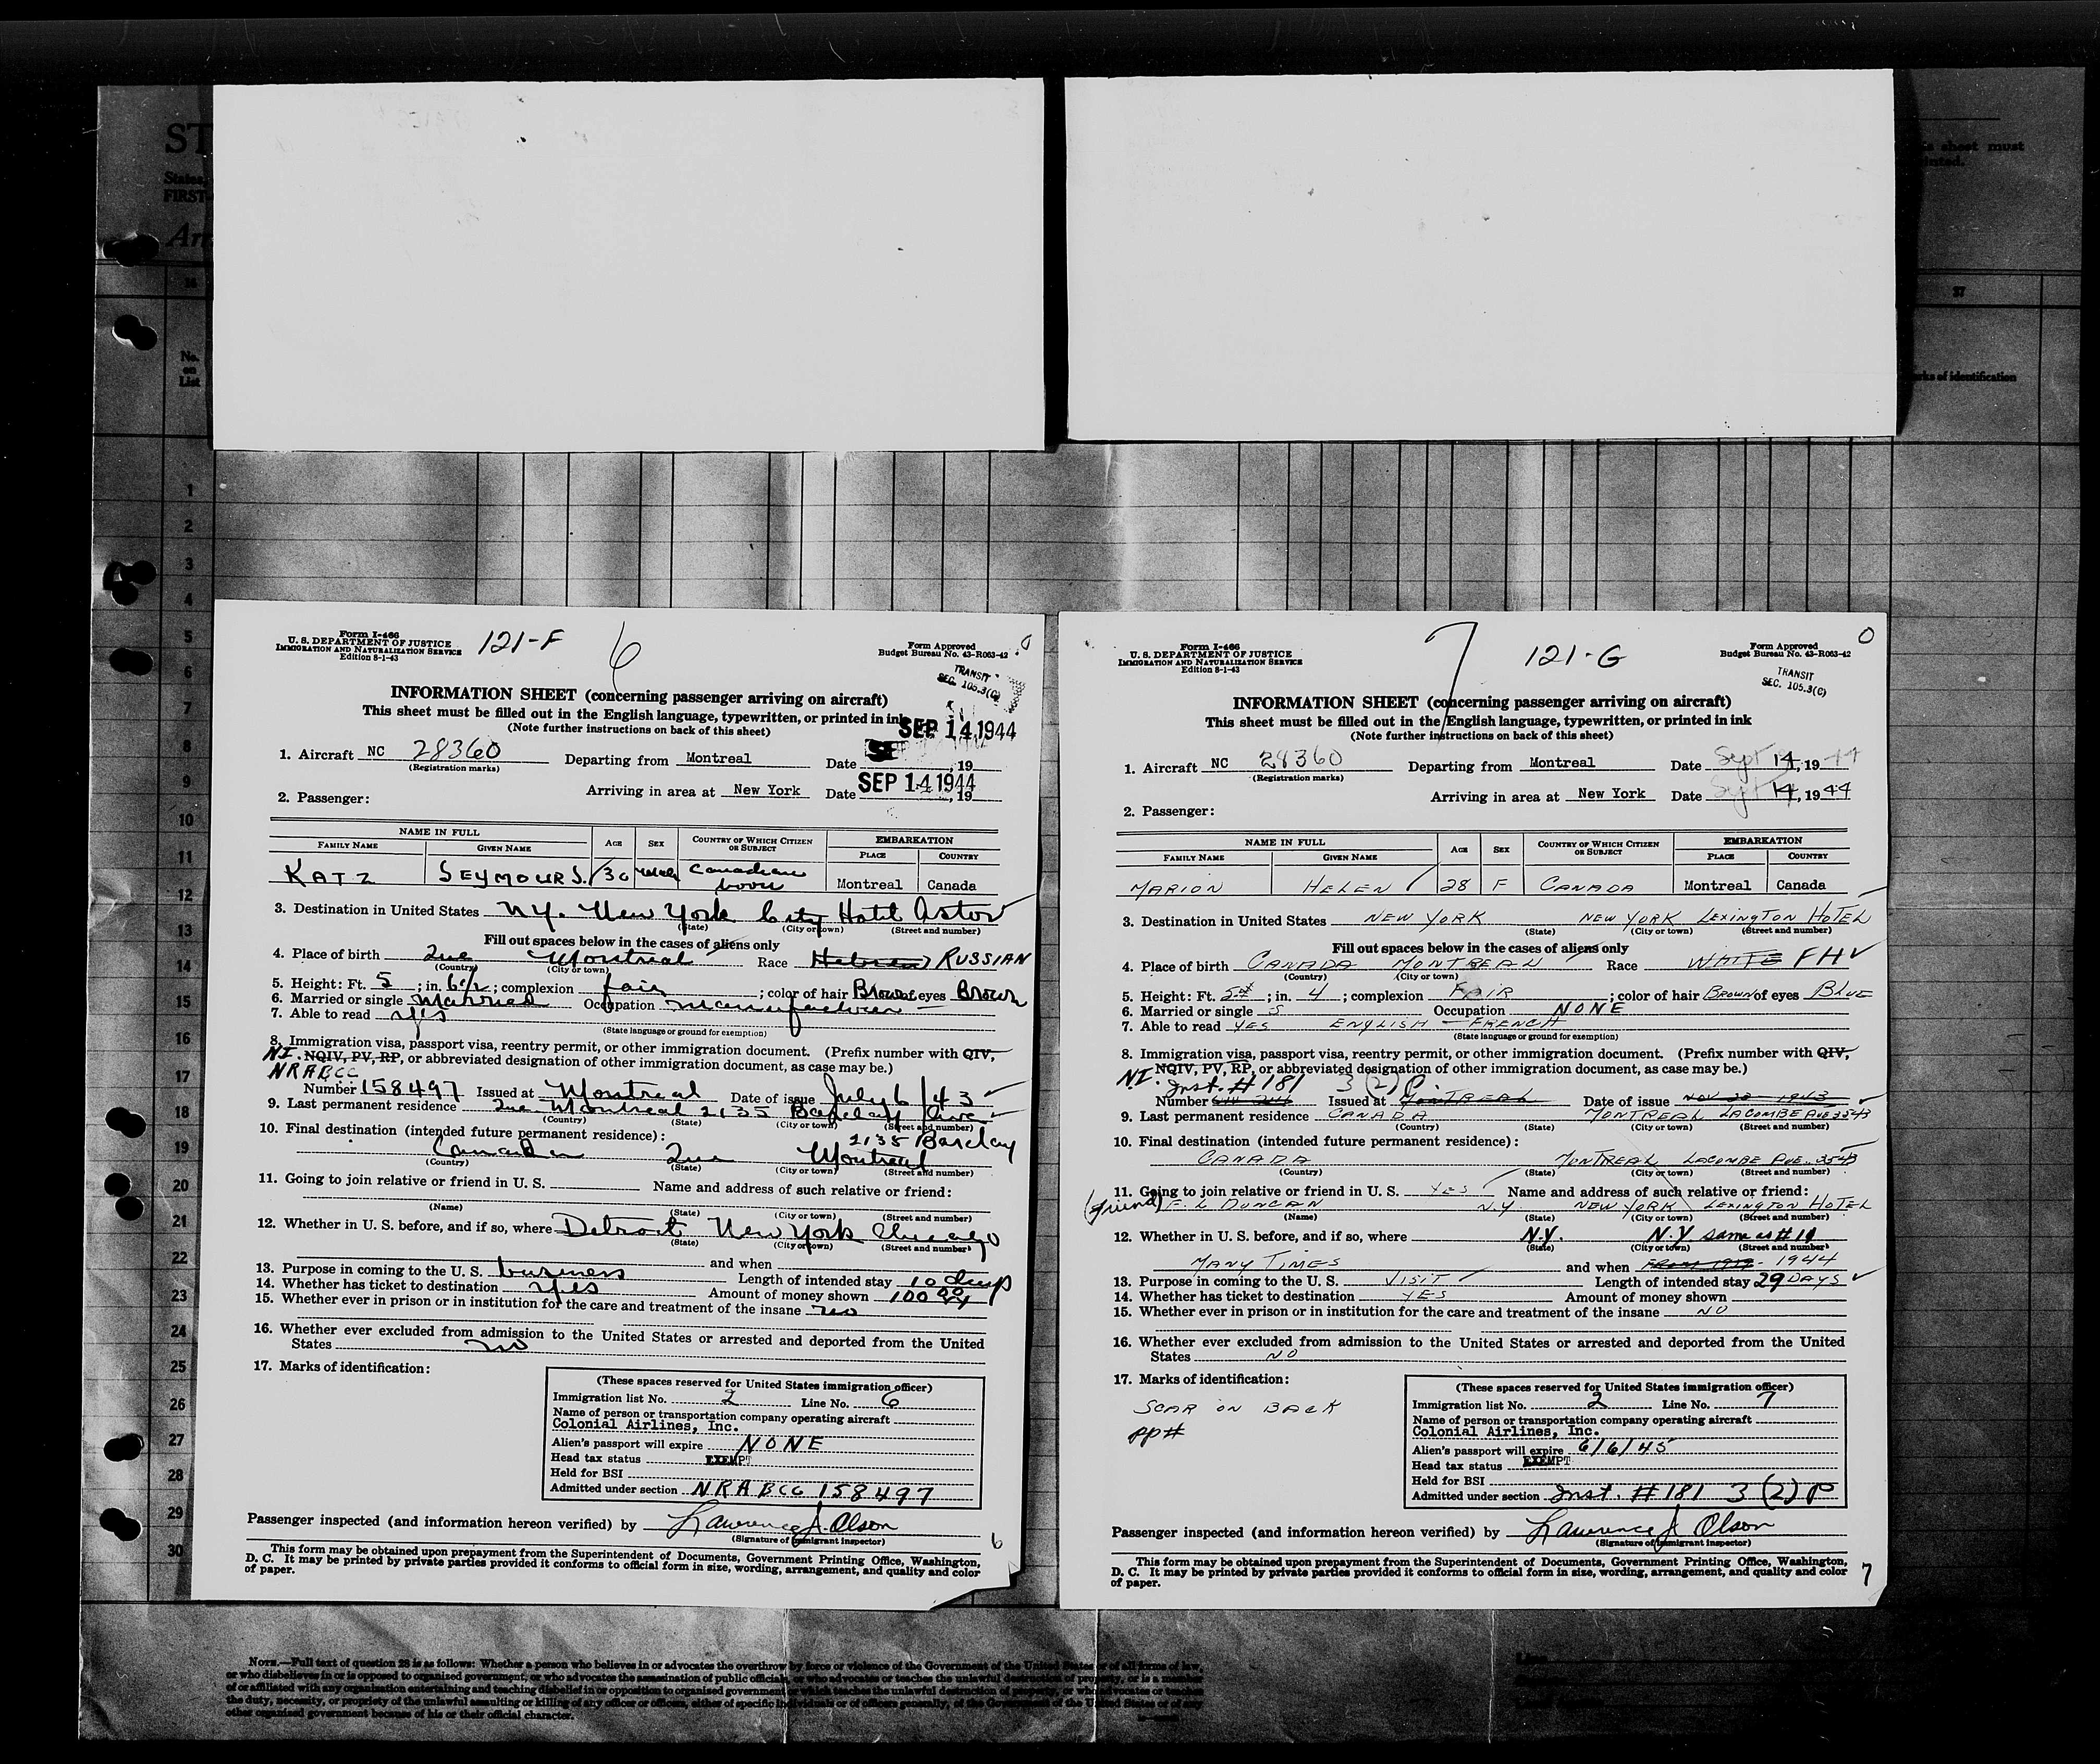 ST
States
FIRST-
Arr
No.
on
List
s sheet must
inted.
27
rks of identification
1
2
3
4
5
6
7
8
9
10
11
12
13
14
15
16
17
18
19
20
21
22
23
24
25
26
27
28
29
30
Form I-466
U. S. DEPARTMENT OF JUSTICE
IMMIGRATION AND NATURALIZATION SERVICE
Edition 8-1-43
121-F 6
Form Approved
Budget Bureau No. 43-R063-42
0
TRANSIT
SEC. 105.3(C)
INFORMATION SHEET (concerning passenger arriving on aircraft)
This sheet must be filled out in the English language, typewritten, or printed in ink
(Note further instructions on back of this sheet)
SEP 14 1944
1. Aircraft NC 28360 Departing from Montreal Date , 19
(Registration marks)
Arriving in area at New York Date SEP 14 1944, 19
2. Passenger:
NAME IN FULL AGE SEX COUNTRY OF WHICH CITIZEN OR SUBJECT EMBARKATION
FAMILY NAME GIVEN NAME PLACE COUNTRY
KATZ SEYMOUR S. 30 Male Canadian born Montreal Canada
3. Destination in United States N.Y. New York City Hotel Astor
(State) (City or town) (Street and number)
Fill out spaces below in the cases of aliens only
4. Place of birth Que Montreal Race Hebrew RUSSIAN
(Country) (City or town)
5. Height: Ft. 5; in. 6 1/2; complexion fair; color of hair Brown of eyes Brown
6. Married or single Married Occupation manufacturer
7. Able to read yes
(State language or ground for exemption)
8. Immigration visa, passport visa, reentry permit, or other immigration document. (Prefix number with QIV,
NI. NQIV, PV, RP, or abbreviated designation of other immigration document, as case may be.)
NRABCC
Number 158497 Issued at Montreal Date of issue July 6/43
9. Last permanent residence Que Montreal 2135 Barclay Ave
(Country) (State) (City or town) (Street and number)
10. Final destination (intended future permanent residence): 2135 Barclay
Canada Que Montreal
(Country) (State) (City or town) (Street and number)
11. Going to join relative or friend in U. S. Name and address of such relative or friend:
(Name) (State) (City or town) (Street and number)
12. Whether in U. S. before, and if so, where Detroit New York Chicago
(State) (City or town) (Street and number)
and when
13. Purpose in coming to the U. S. business Length of intended stay 10 days
14. Whether has ticket to destination yes Amount of money shown 100 00
15. Whether ever in prison or in institution for the care and treatment of the insane no
16. Whether ever excluded from admission to the United States or arrested and deported from the United
States no
17. Marks of identification:
(These spaces reserved for United States immigration officer)
Immigration list No. 2 Line No. 6
Name of person or transportation company operating aircraft
Colonial Airlines, Inc.
Alien's passport will expire NONE
Head tax status EXEMPT
Held for BSI
Admitted under section NRABCC 158497
Passenger inspected (and information hereon verified) by Lawrence J. Olson
(Signature of immigrant inspector)
6
This form may be obtained upon prepayment from the Superintendent of Documents, Government Printing Office, Washington,
D. C. It may be printed by private parties provided it conforms to official form in size, wording, arrangement, and quality and color
of paper.
Form I-466
U. S. DEPARTMENT OF JUSTICE
IMMIGRATION AND NATURALIZATION SERVICE
Edition 8-1-43
7 121-G
Form Approved
Budget Bureau No. 43-R063-42
0
TRANSIT
SEC. 105.3(C)
INFORMATION SHEET (concerning passenger arriving on aircraft)
This sheet must be filled out in the English language, typewritten, or printed in ink
(Note further instructions on back of this sheet)
1. Aircraft NC 28360 Departing from Montreal Date Sept 14, 1944
(Registration marks)
Arriving in area at New York Date Sept 14, 1944
2. Passenger:
NAME IN FULL AGE SEX COUNTRY OF WHICH CITIZEN OR SUBJECT EMBARKATION
FAMILY NAME GIVEN NAME PLACE COUNTRY
MARION HELEN 28 F CANADA Montreal Canada
3. Destination in United States NEW YORK NEW YORK LEXINGTON HOTEL
(State) (City or town) (Street and number)
Fill out spaces below in the cases of aliens only
4. Place of birth CANADA MONTREAL Race WHITE FH
(Country) (City or town)
5. Height: Ft. 5ft; in. 4; complexion FAIR; color of hair BROWN of eyes BLUE
6. Married or single S Occupation NONE
7. Able to read YES ENGLISH - FRENCH
(State language or ground for exemption)
8. Immigration visa, passport visa, reentry permit, or other immigration document. (Prefix number with QIV,
NI. NQIV, PV, RP, or abbreviated designation of other immigration document, as case may be.)
Inst. # 181 3 (2) P.
Number Issued at MONTREAL Date of issue NOV 1943
9. Last permanent residence CANADA MONTREAL LACOMBE AVE 3543
(Country) (State) (City or town) (Street and number)
10. Final destination (intended future permanent residence):
CANADA MONTREAL LACOMBE AVE. 3543
(Country) (State) (City or town) (Street and number)
11. Going to join relative or friend in U. S. YES Name and address of such relative or friend:
(friend) F. L DUNCAN N.Y. NEW YORK LEXINGTON HOTEL
(Name) (State) (City or town) (Street and number)
12. Whether in U. S. before, and if so, where N.Y. N.Y same as # 11
(State) (City or town) (Street and number)
MANY TIMES and when - 1944
13. Purpose in coming to the U. S. VISIT Length of intended stay 29 DAYS
14. Whether has ticket to destination YES Amount of money shown
15. Whether ever in prison or in institution for the care and treatment of the insane NO
16. Whether ever excluded from admission to the United States or arrested and deported from the United
States NO
17. Marks of identification:
SCAR ON BACK
pp#
(These spaces reserved for United States immigration officer)
Immigration list No. 2 Line No. 7
Name of person or transportation company operating aircraft
Colonial Airlines, Inc.
Alien's passport will expire 6/6/45
Head tax status EXEMPT
Held for BSI
Admitted under section Inst. # 181 3 (2) P
Passenger inspected (and information hereon verified) by Lawrence J. Olson
(Signature of immigrant inspector)
This form may be obtained upon prepayment from the Superintendent of Documents, Government Printing Office, Washington,
D. C. It may be printed by private parties provided it conforms to official form in size, wording, arrangement, and quality and color
of paper.
7
NOTE.—Full text of question 28 is as follows: Whether a person who believes in or advocates the overthrow by force or violence of the Government of the United States or of all forms of law,
or who disbelieves in or is opposed to organized government, or who advocates the assassination of public officials, or who advocates or teaches the unlawful destruction of property, or is a member
of or affiliated with any organization entertaining and teaching disbelief in or opposition to organized government, or which teaches the unlawful destruction of property, or who advocates or teaches
the duty, necessity, or propriety of the unlawful assaulting or killing of any officer or officers, either of specific individuals or of officers generally, of the Government of the United States or of any
other organized government because of his or their official character.